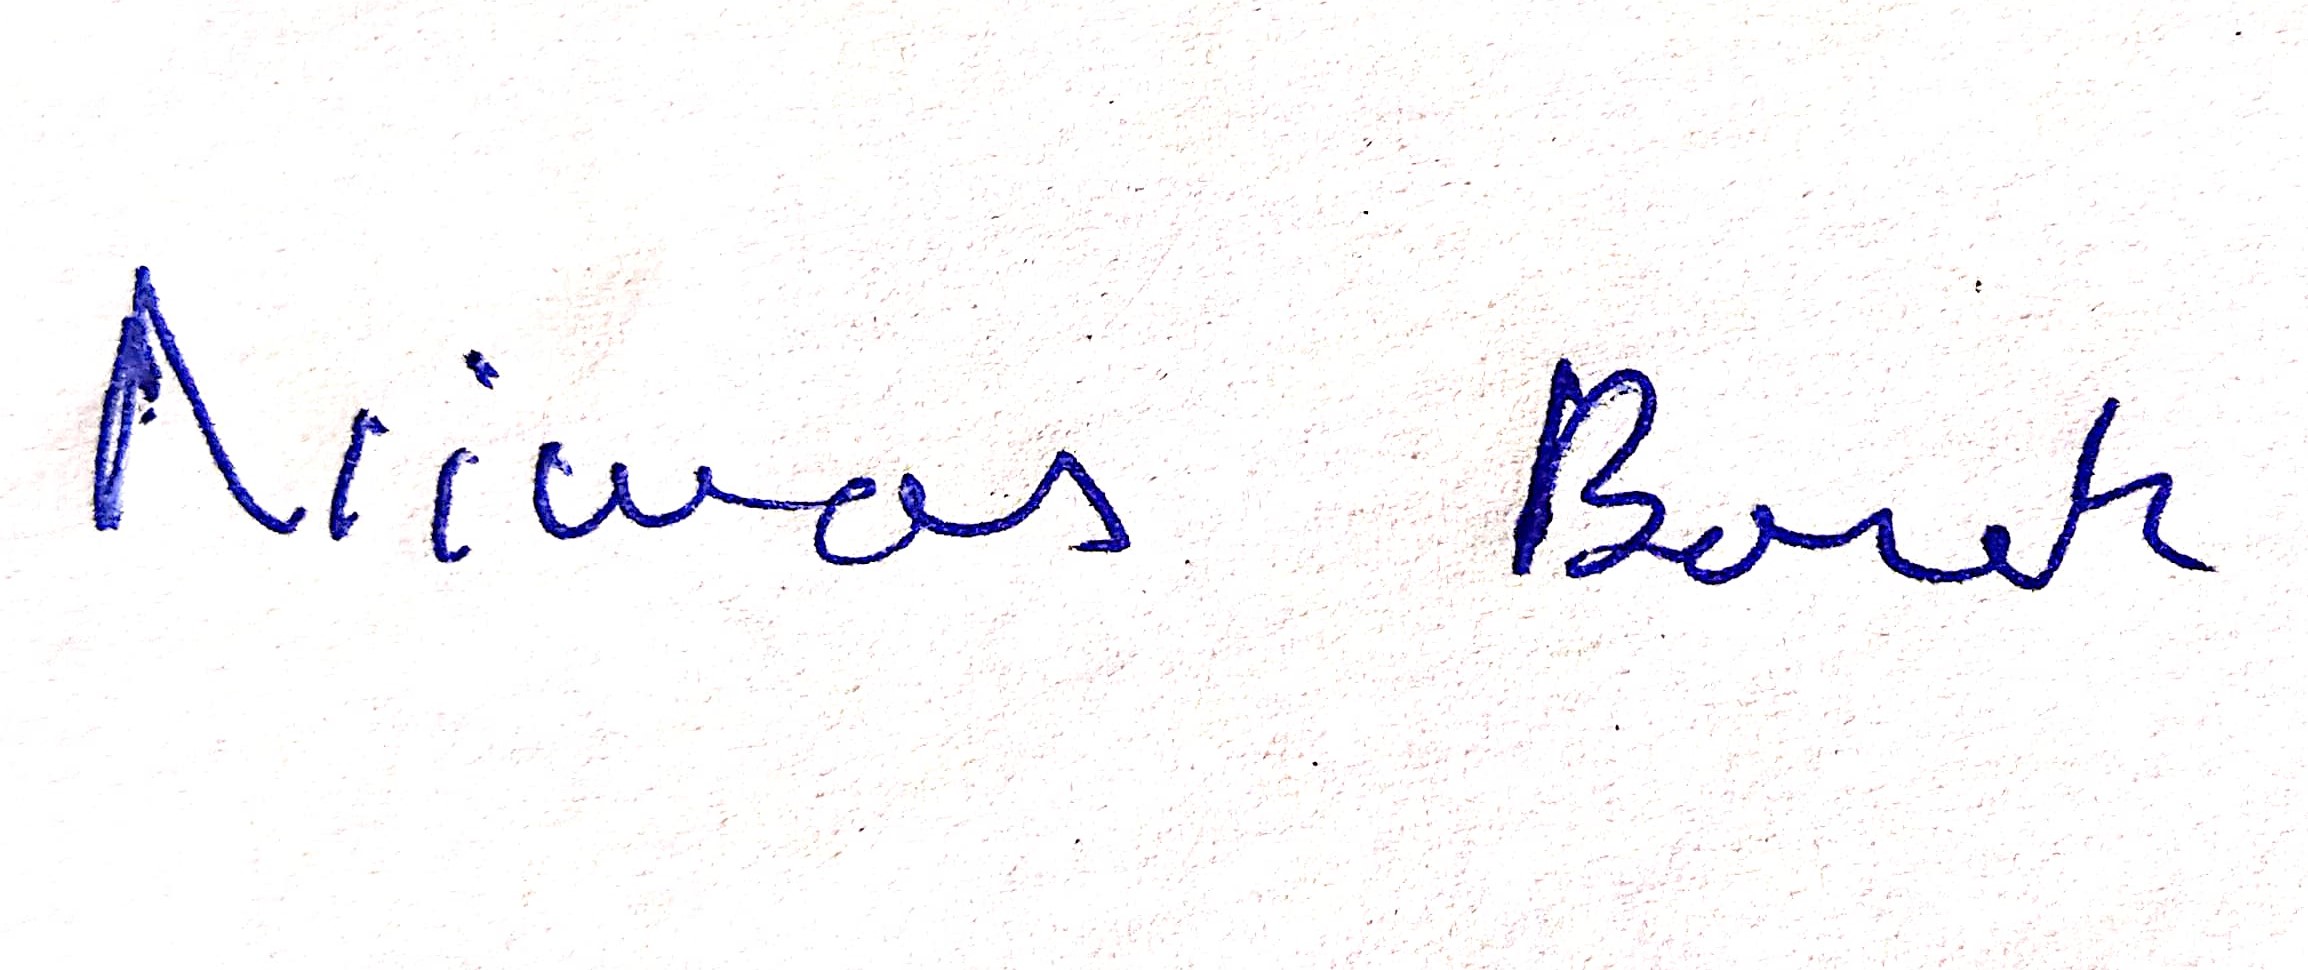 Niwas Borah